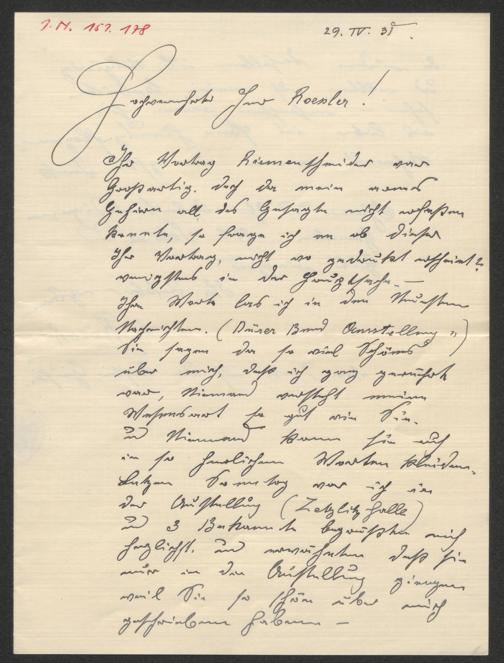 I.N. 151.178
29. IV. 31.
Hochverehrter Herr Roessler!
Ihr Vortrag Riemenschneider war
Großartig. doch da mein armes
Gehirn all das Gesagte nicht erfassen
konnte, so frage ich an ob dieser
Ihr Vortrag, nicht wo gedruckt erscheint?
wenigstens in der Hauptsache. —
Ihre Worte las ich in den Neuesten
Nachrichten. (Dürer Bund Ausstellung")
Sie sagen da so viel Schönes
über mich, daß ich ganz gerührt
war, Niemand versteht meine
Wesensart so gut wie Sie.
und Niemand kann sie auch
in so herrlichen Worten kleiden.
Letzten Sonntag war ich in
der Ausstellung (Zedlitzhalle)
und 3 Bekannte begrüßten mich
herzlichst, und erwähnten daß sie
nur in die Ausstellung giengen
weil Sie so schön über mich
geschrieben haben —